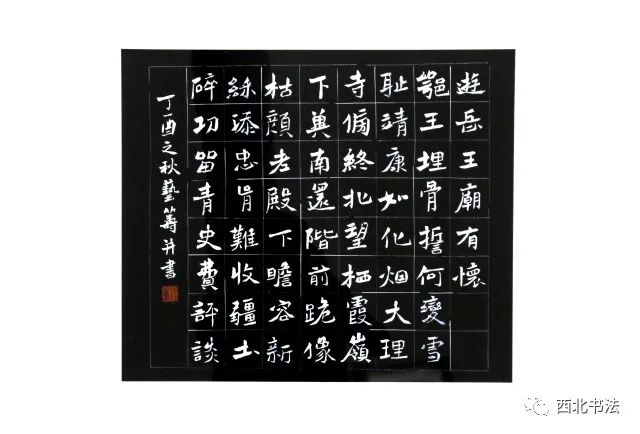 遊岳王廟有懷
鄂王埋骨誓何變雪
耻靖康如化烟大理
寺偏終北望栖霞嶺
下奠南還階前跪像
枯顔老殿下瞻容新
絲添忠骨難收疆土
碎功留青史費評談
丁酉之秋藝籌并書
西北书法